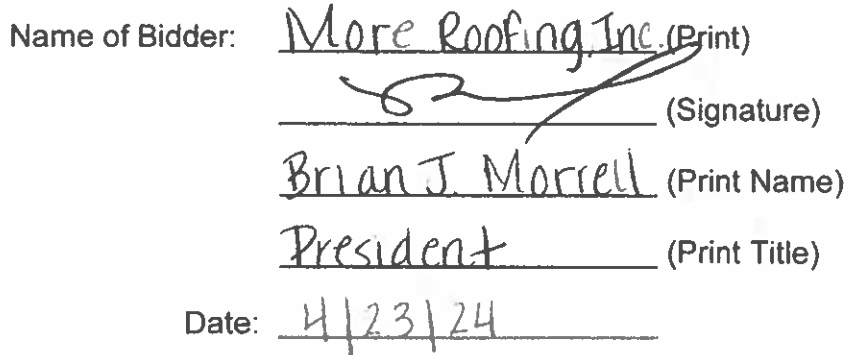 Name of Bidder: More Roofing, Inc. (Print)
(Signature)
Brian J. Morrell (Print Name)
President (Print Title)
Date: 4/23/24